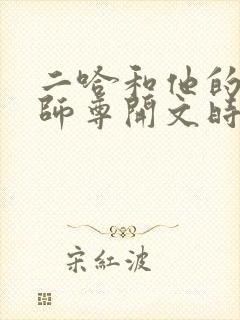 二哈和他的
师尊開文時
宋紅波